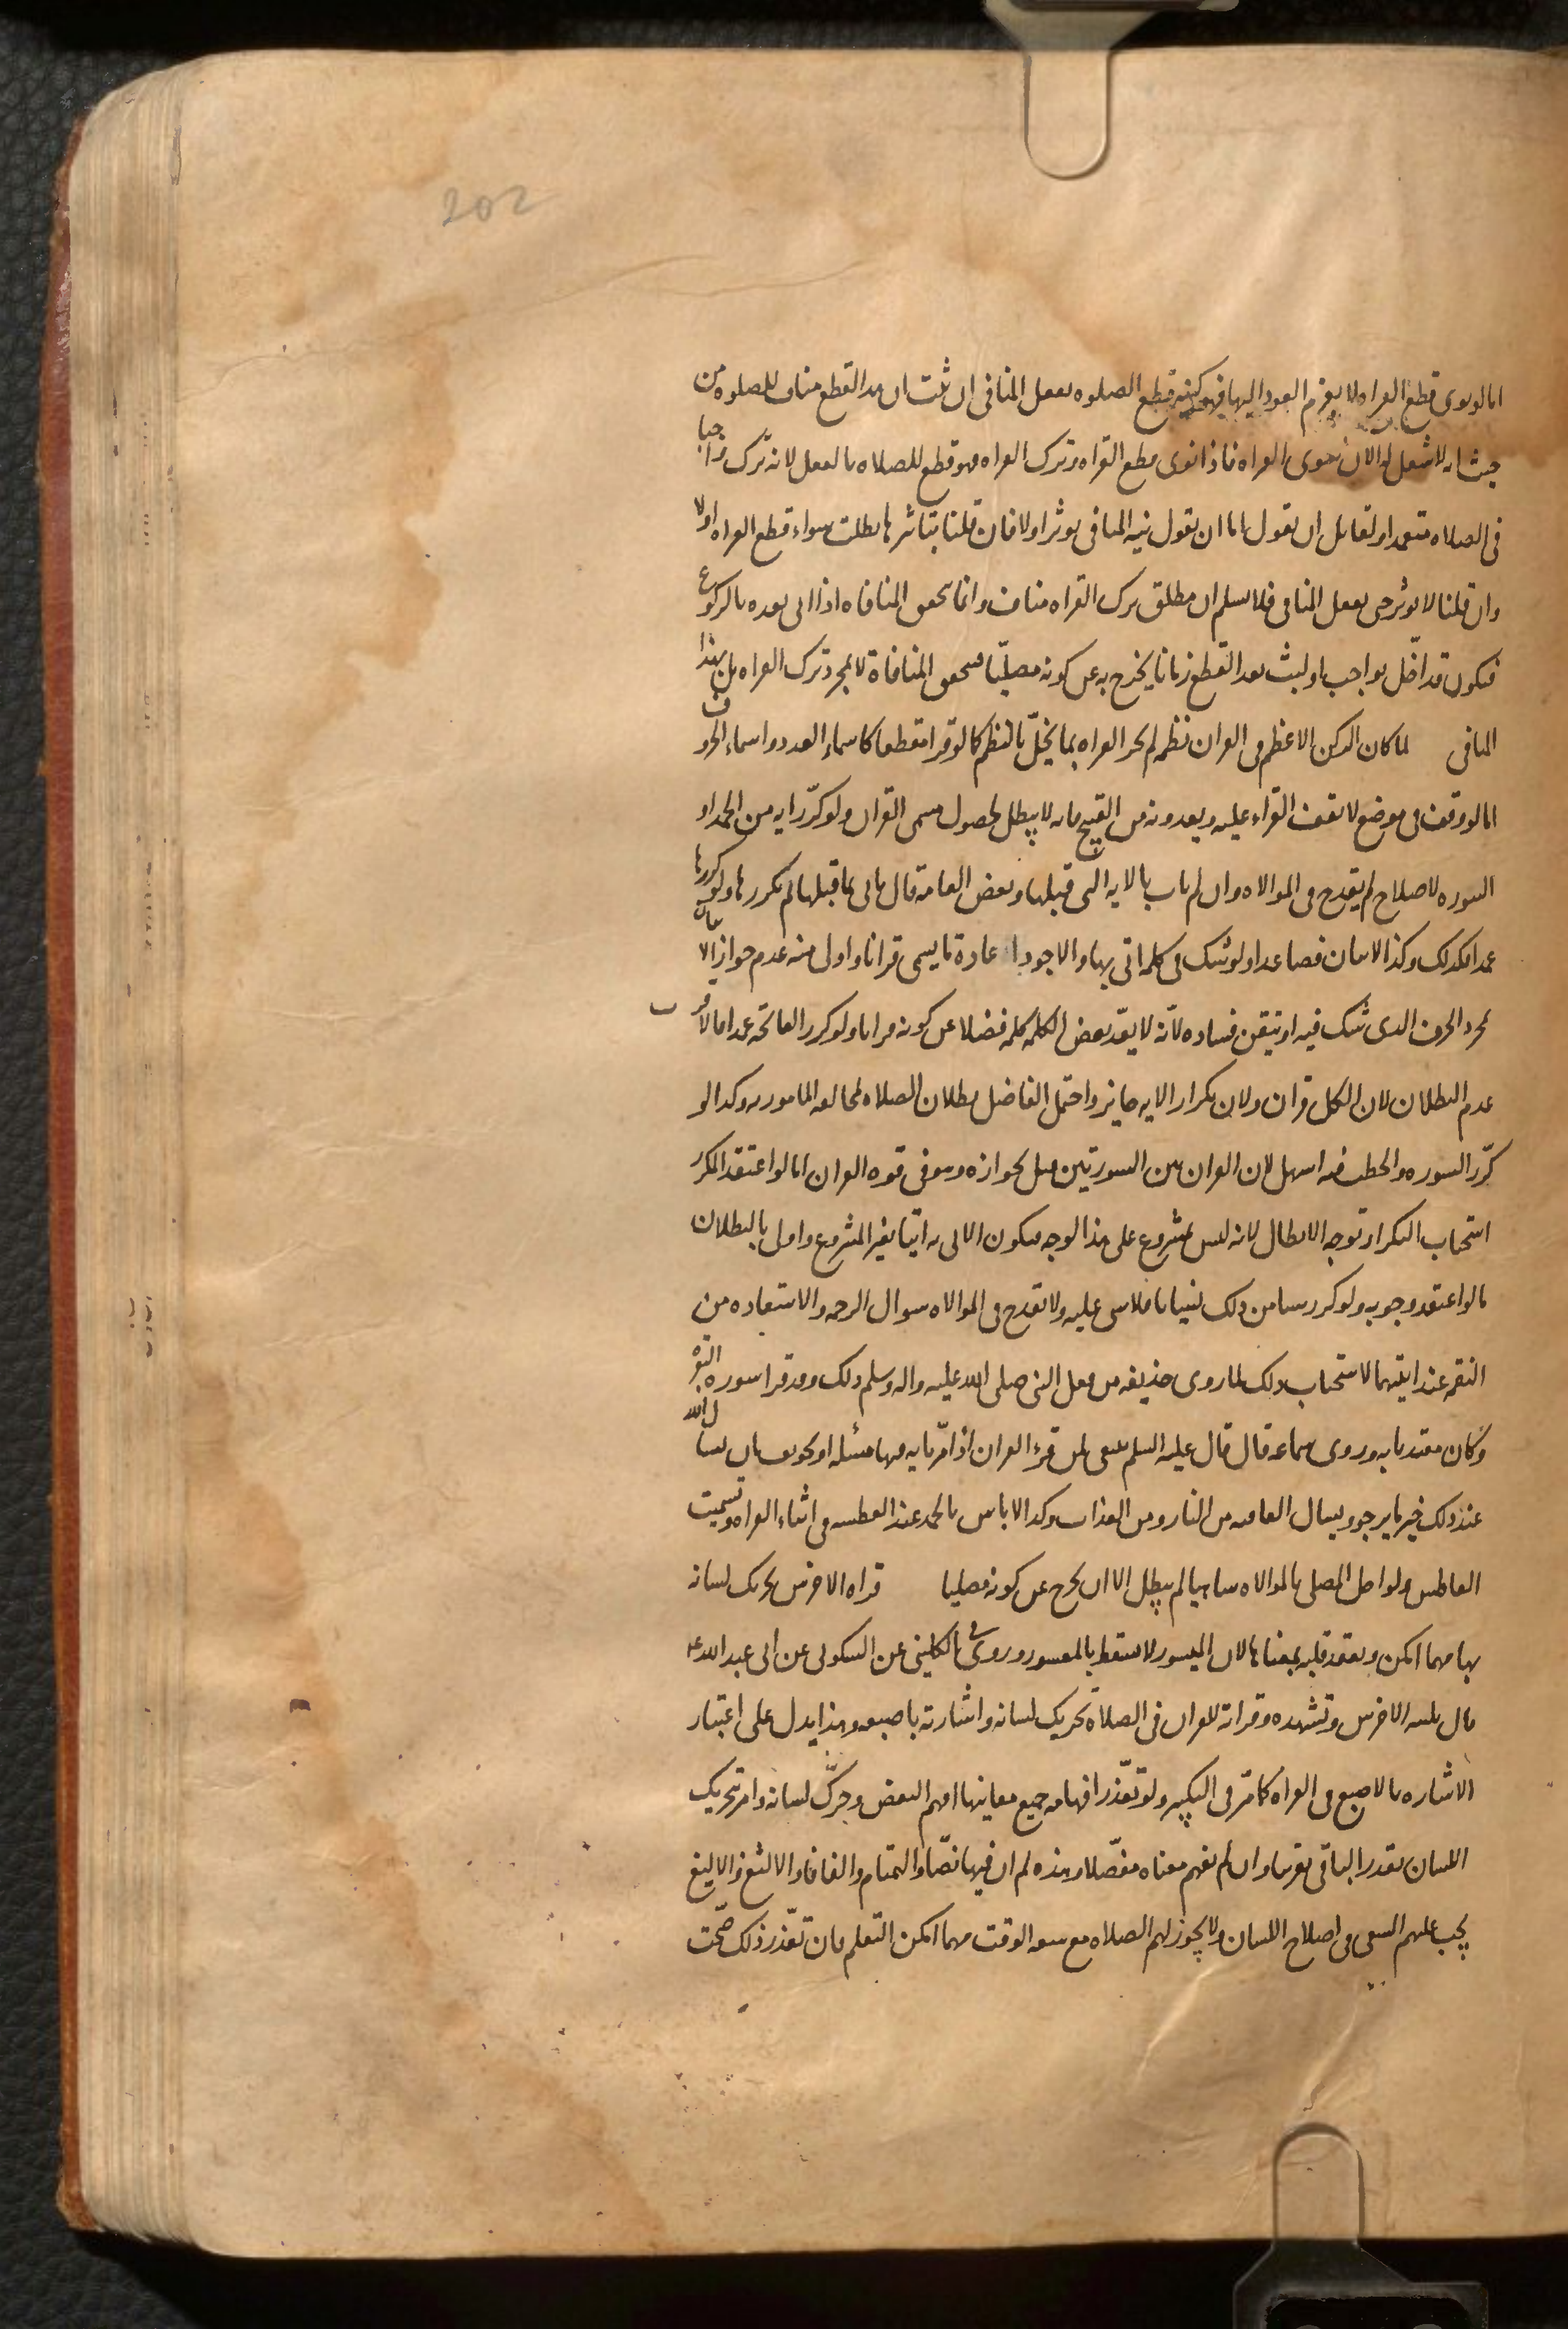 202
اما لو نوى قطع القراه لا بعزم العود اليها فهو كنيه قطع الصلوه بفعل المنافى ان ثبت ان هذا القطع مناف للصلوه من
حيث انه لا شغل له الان سوى القراه فاذا نوى قطع القراه وترك القراه فهو قطع للصلاه بالفعل لانه ترك واجبا
فى الصلاه متعمدا ولقائل ان يقول اما ان يقول نيه المنافى يوثر اولا فان قلنا بتاثيرها بطلت سواء قطع القراه اولا
وان قلنا لا يوثر حتى يفعل المنافى فلا نسلم ان مطلق ترك القراه مناف وانما تتحقق المنافاه اذا اتى بعده بالركوع
فيكون قد اخلّ بواجب او لبث بعد القطع زمانا يخرج به عن كونه مصليّا فتتحقق المنافاة لا بمجرد ترك القراه بل بهذا
المنافى لما كان الركن الاعظم فى القران نظمه لم تجز القراه بما يخلّ بالنظم كما لو قرا مقطعا كاسماء العدد واسماء الحروف
اما لو وقف فى موضع لا يقف القراء عليه ويعدونه من القبيح فانه لا يبطل لحصول مسمى القران ولو كرّر ايه من الحمد او
السوره لاصلاح لم يقدح فى الموالاه وان لم يات بالايه التى قبلها وبعض العامه قال ياتى بما قبلها لم يكررها ولو كررها
عمدا فكذلك وكذا الايتان فصاعدا ولو شك فى كلمه اتى بها والاجود اعادة ما يسمى قرانا واولى منه عدم جواز الاتيان
بمجرد الحرف الذى شك فيه او تيقن فساده لانه لا يعدّ بعض الكلمه كلمه فضلا عن كونه قرانا ولو كرر الفاتحه عمدا فالاقرب
عدم البطلان لان الكل قران ولان تكرار الايه جايز واحتمل الفاضل بطلان الصلاه لمخالفه المامور به وكذا لو
كرّر السوره والخطب فيه اسهل لان القران بين السورتين قيل بجوازه وهو فى قوه القران اما لو اعتقد المكرر
استحباب التكرار توجه الابطال لانه ليس بمشروع على هذا الوجه فيكون الاتى به اتيا بغير المشروع واولى بالبطلان
ما لو اعتقد وجوبه ولو كرر شيئا من ذلك نسيانا فلا شى عليه ولا تقدح فى الموالاه سوال الرحمه والاستعاذه من
النقمه عند ايتيهما لاستحباب ذلك لما روى حذيفه من فعل النبى صلى الله عليه واله وسلم ذلك وقد قرا سوره البقره
وكان مقتديا به وروى سماعه قال قال عليه السلم ينبغى لمن قرء القران اذا مرّ بايه فيها مسئله او تخويف ان يسال الله
عند ذلك خير ما يرجو ويسال العافيه من النار ومن العذاب وكذا لا باس بالحمد عند العطسه فى اثناء القراه وتسميت
العاطس ولو اخل المصلى بالموالاه ساهيا لم يبطل الا ان يخرج عن كونه مصليا قراه الاخرس تحريك لسانه
بها مهما امكن وبعقد قلبه بمعناها لان الميسور لا يسقط بالمعسور وروى الكلينى عن السكونى عن ابى عبد الله ع
قال تلبيه الاخرس وتشهده وقراته للقران فى الصلاة تحريك لسانه واشارته باصبعه وهذا يدل على اعتبار
الاشاره بالاصبع فى القراه كما مرّ فى التكبير ولو تعذّر افهامه جميع معانيها افهم البعض وحرّك لسانه وامر بتحريك
اللسان بقدر الباقى تقريبا وان لم يفهم معناه مفصّلا وهذه لم ار فيها نصّا والتمتام والفافا والالثغ والاليغ
يجب عليهم السعى فى اصلاح اللسان ولا يجوز لهم الصلاه مع سعه الوقت مهما امكن التعلم فان تعذّر ذلك صحّت